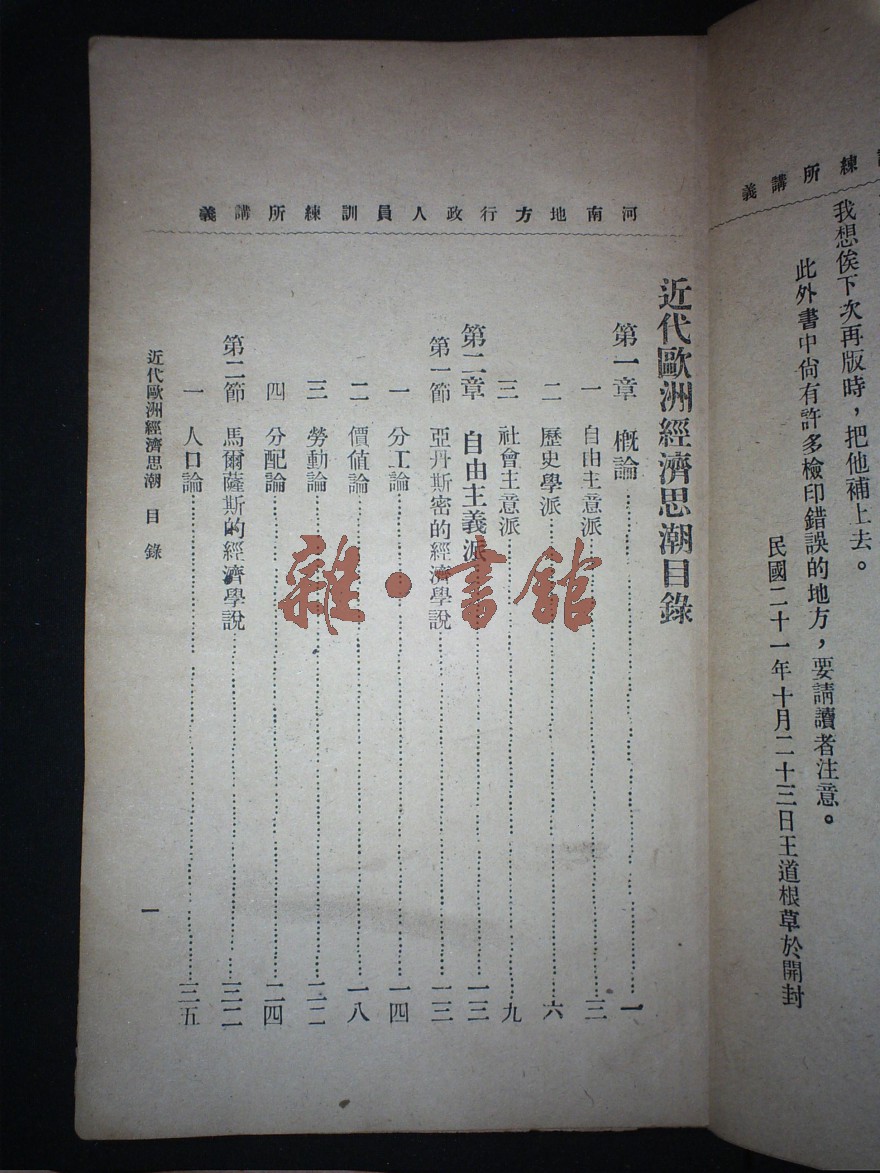 練所講義
我想俟下次再版時,把他補上去。
此外書中尙有許多檢印錯誤的地方,要請讀者注意。
民國二十一年十月二十三日王道根草於開封
河南地方行政人員訓練所講義
近代歐洲經濟思潮目錄
第一章 概論……一
一 自由主意派……三
二 歷史學派……六
三 社會主意派……九
第二章 自由主義派……一三
第一節 亞丹斯密的經濟學說……一三
一 分工論……一四
二 價值論……一八
三 勞動論……二二
四 分配論……二四
第二節 馬爾薩斯的經濟學說……三二
一 人口論……三五
近代歐洲經濟思潮 目錄
一
雜·書館